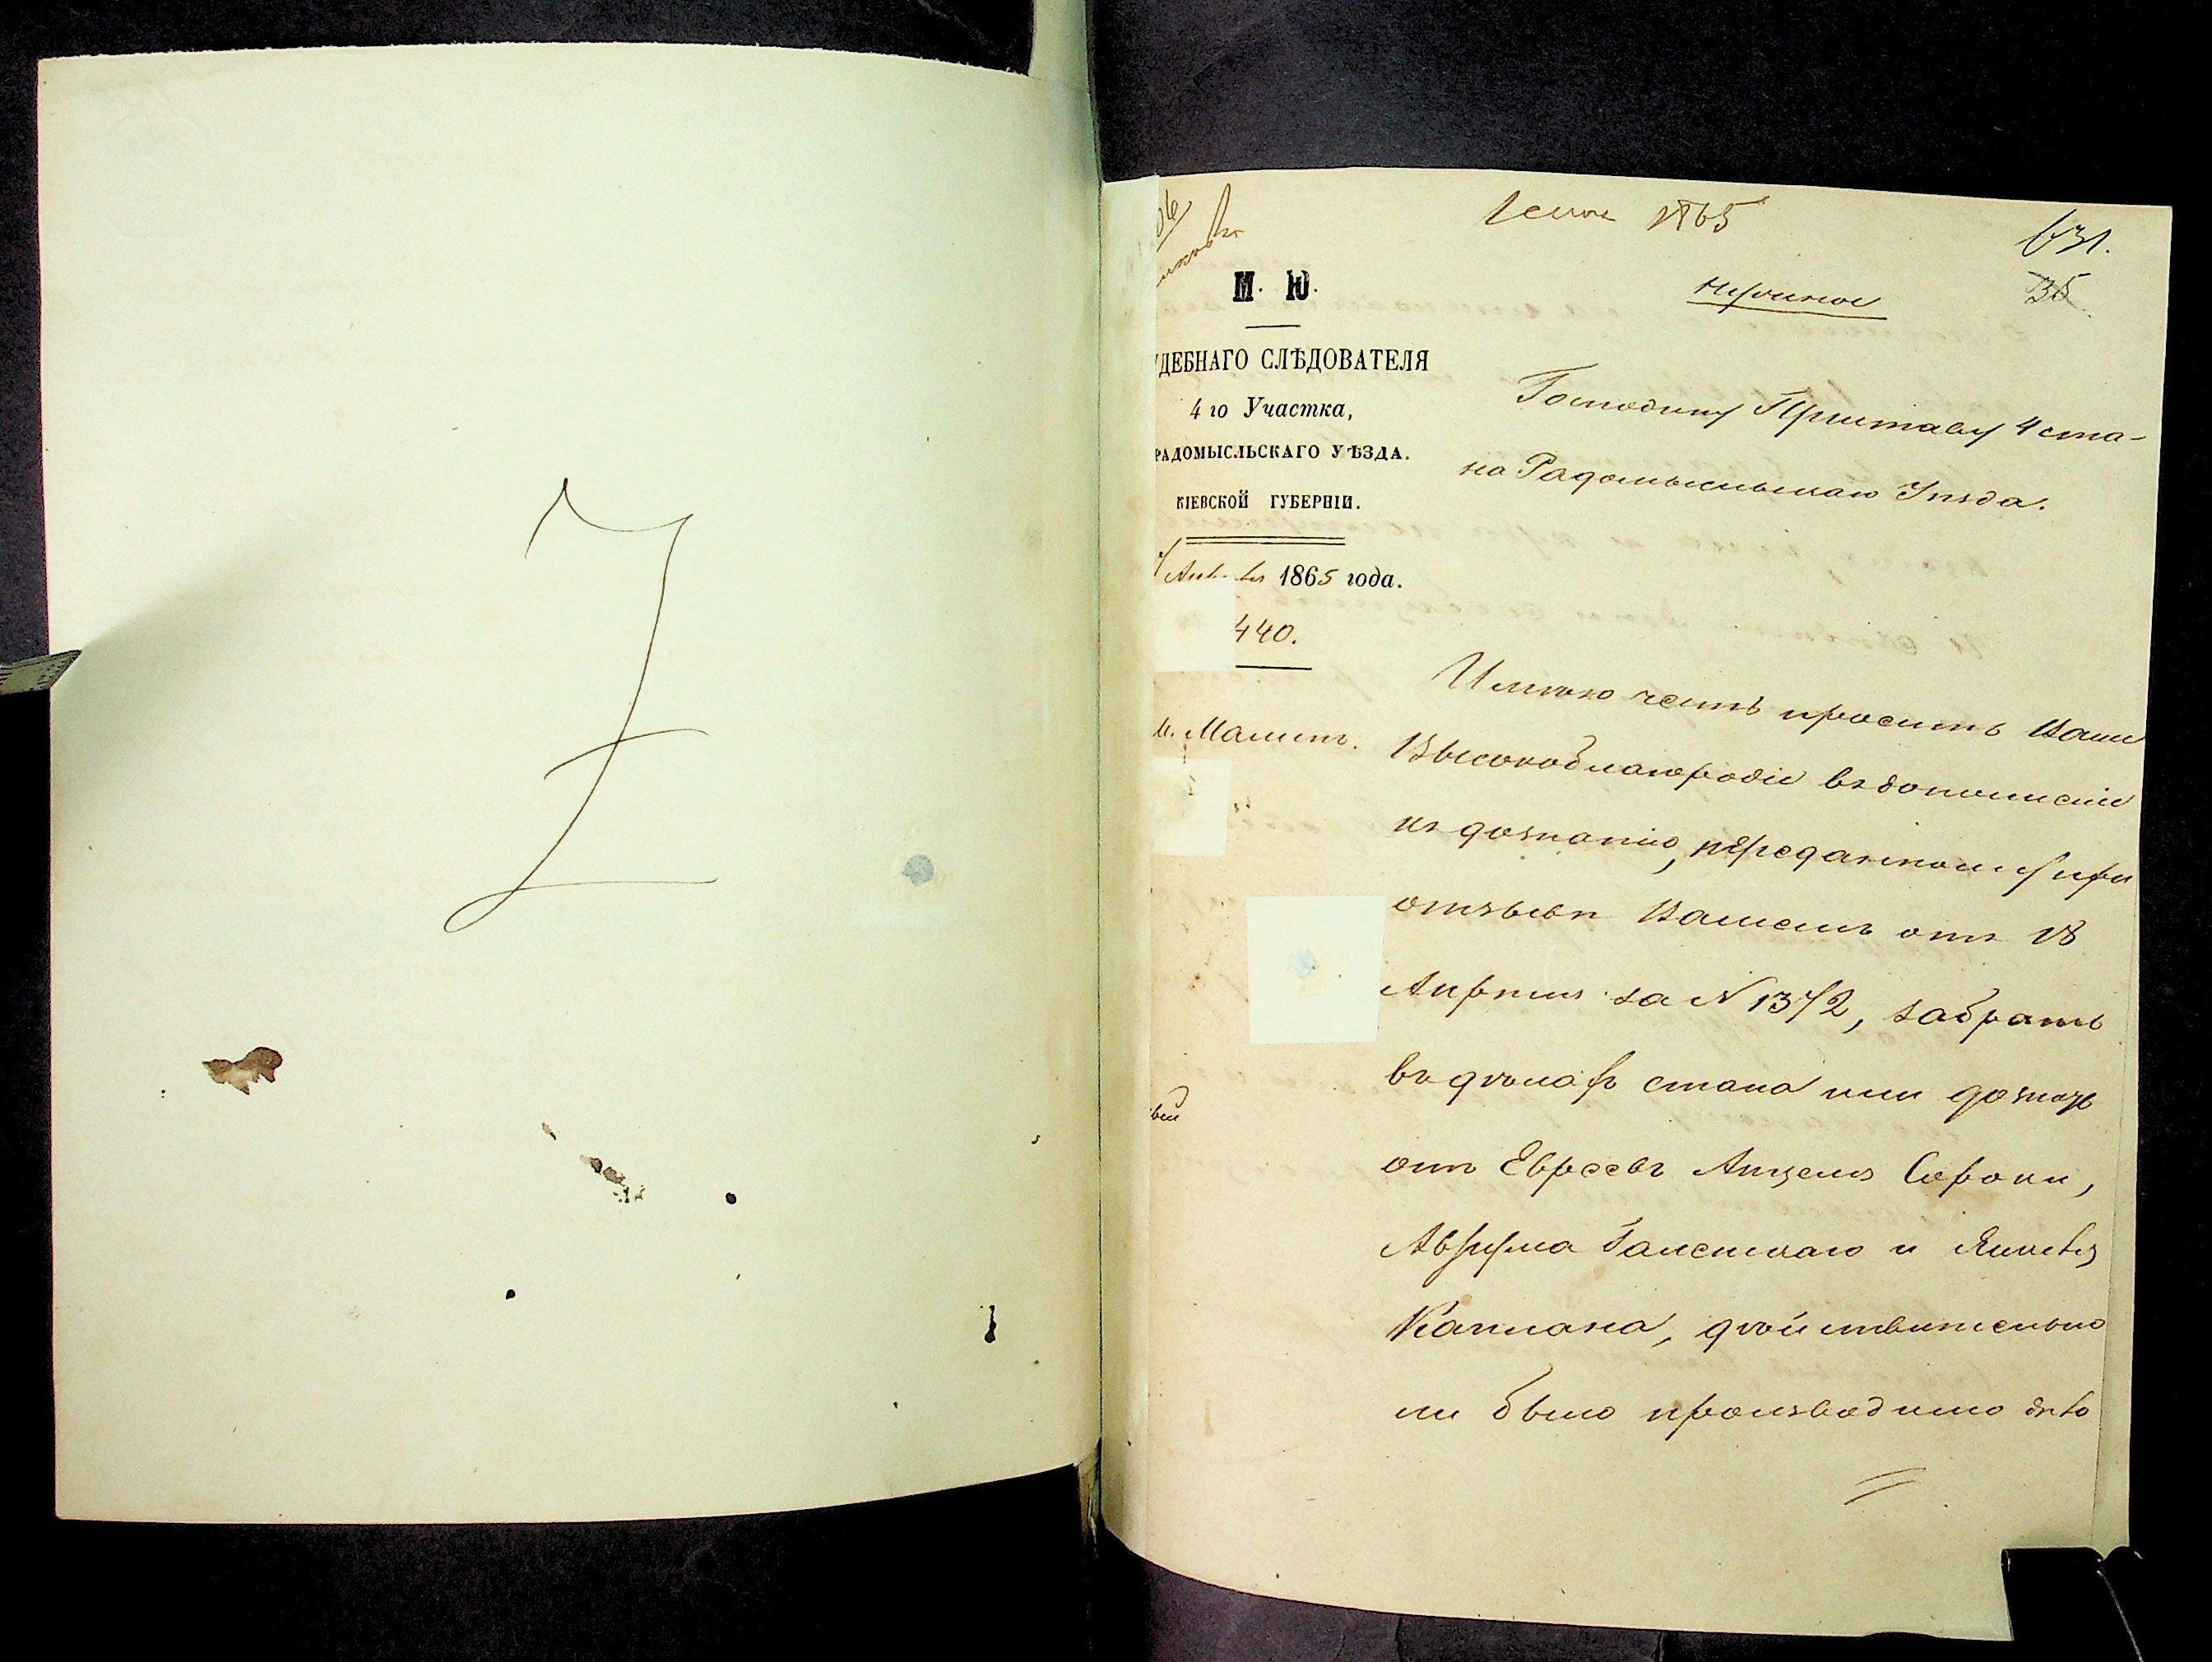 1865
631.
35
М. Ю.
нужное
ДЕБНАГО СЛѢДОВАТЕЛЯ
4 го Участка,
РАДОМЫСЛЬСКАГО УѢЗДА.
КІЕВСКОЙ ГУБЕРНІИ.
1865 года.
440.
м. Малинъ.
Господину Приставу 4 ста-
на Радомысльскаго Уѣзда.
Имѣю честь просить Ваше
Высокоблагородіе въ дополненіе
къ дознанію, переданному при
отзывѣ Вашемъ отъ 18
Апрѣля за N 1372, забрать
въ дѣлахъ стана или дознать
отъ Евреевъ Анцеля Сороки,
Аврума Галенскаго и Янкеля
Каплана, дѣйствительно
ли было производимо дѣло